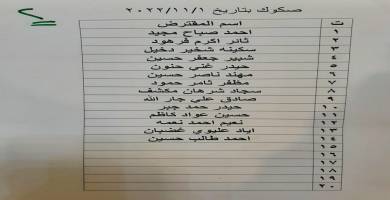 صكوك بتاريخ ٢٠٢٢/١١/١
ت اسم المقترض
١ احمد صباح مجيد
٢ ثائر اكرم فرهود
٣ سكينه شخير دخيل
٤ شبير جعفر حسين
٥ حيدر غني حنون
٦ مهند ناصر حسين
٧ مظفر ثامر حمود
٨ سجاد شرهان مكشف
٩ صادق علي جار الله
١٠ حيدر حمد جبر
١١ حسين عواد كاظم
١٢ نعيم احمد نعمه
١٣ اياد عليوي غضبان
١٤ احمد طالب حسين
١٥
١٦
١٧
١٨
١٩
٢٠